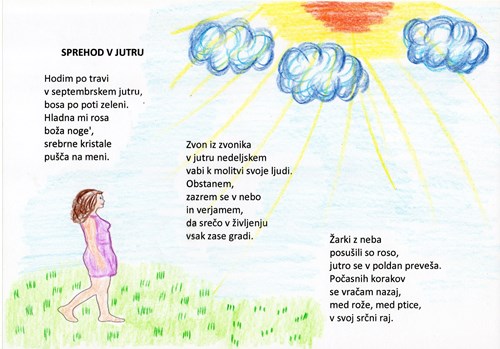 SPREHOD V JUTRU
Hodim po travi
v septembrskem jutru,
bosa po poti zeleni.
Hladna mi rosa
boža noge',
srebrne kristale
pušča na meni.
Zvon iz zvonika
v jutru nedeljskem
vabi k molitvi svoje ljudi.
Obstanem,
zazrem se v nebo
in verjamem,
da srečo v življenju
vsak zase gradi.
Žarki z neba
posušili so roso,
jutro se v poldan preveša.
Počasnih korakov
se vračam nazaj,
med rože, med ptice,
v svoj srčni raj.